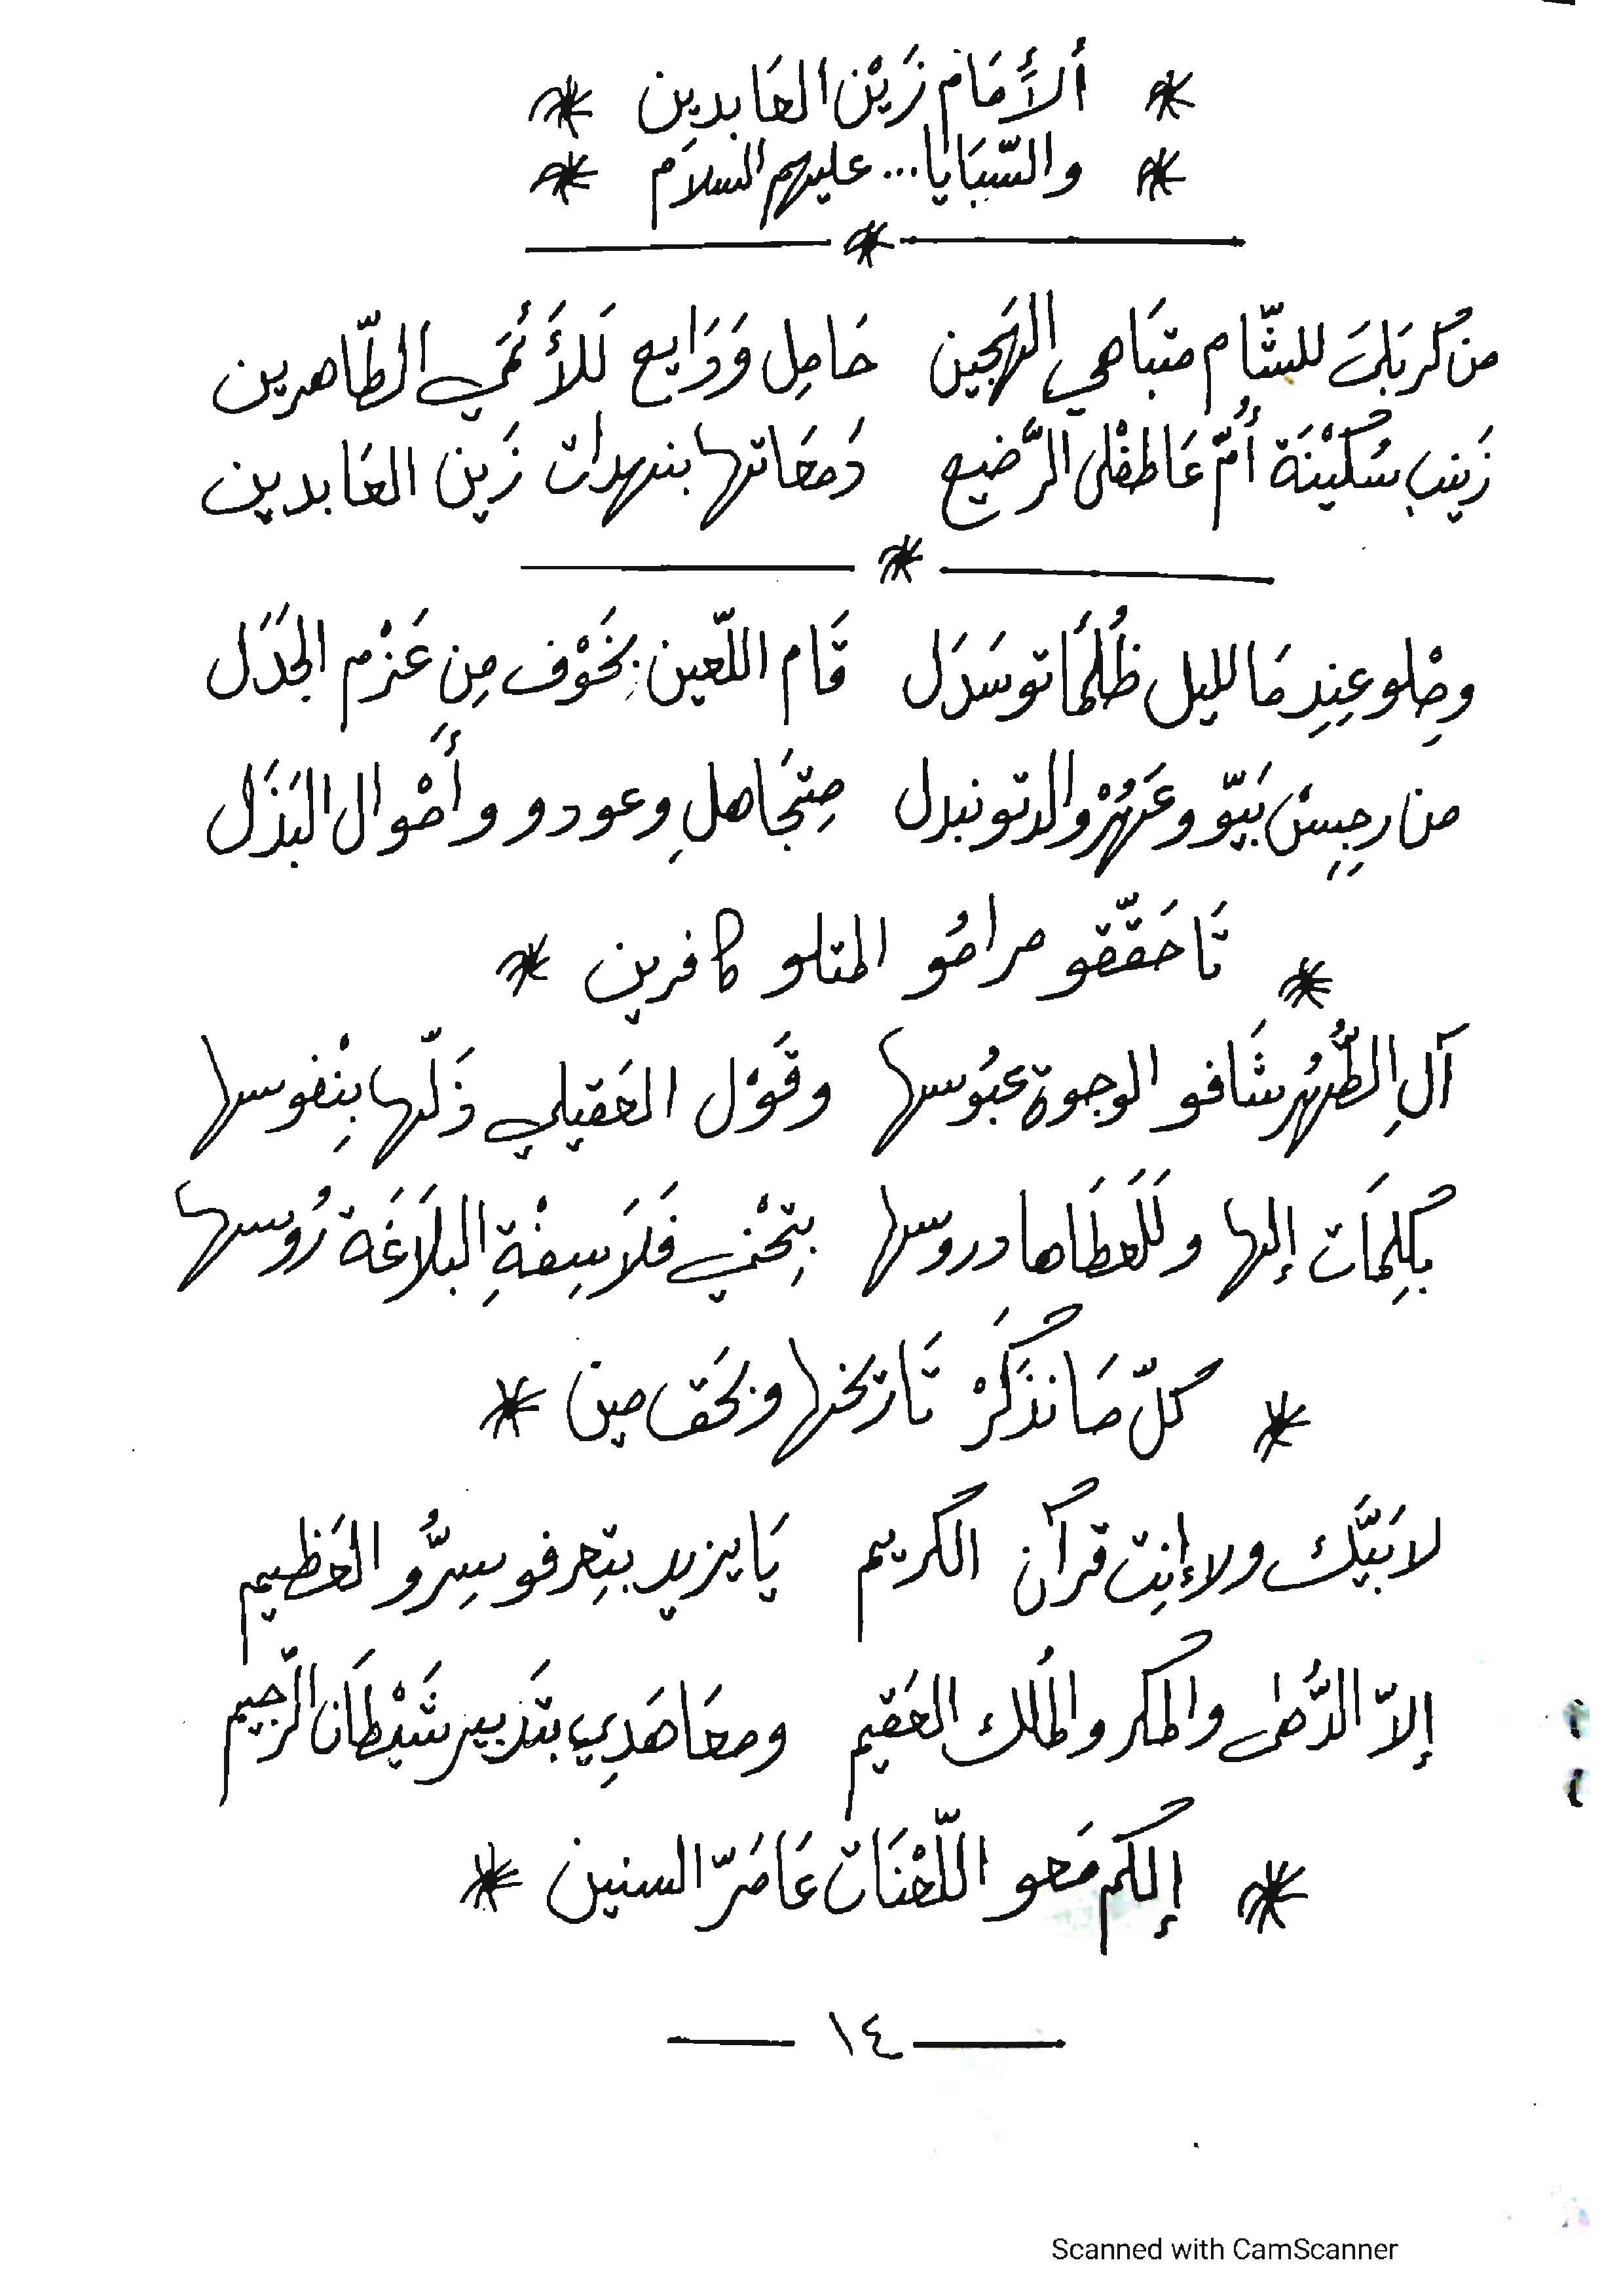 أَلأَمَام زَيْن العَابدِين
والسَّبَايا... عليهم السلاَم
من كُربَلَىَ للشَّام متبَاهي الهَجين حَامِل وَدَايع لَلأَئمَي الطَّاهرين
زَينب سُكَيْنَة أُمّ عَاطفْلى الرَّضيع دَمعَاتها بنهدات زَين العَابدين
وصْلو عِندِ مَا لليل ظُلمَاتو سَدَل قَام اللّعين بخَوْف مِن عَزْم الجَدَل
من رجِسْ بَيّو وعَهُرْ والدتو نبدل مِتجَاهلِ وعودو وأَمْوال البَذَل
تَا حَقَّقو مرامُو المتلو كافرين
آلِ الطُّهُر شَافو الوجوة عبُوسها وقَوْل العَقيلي ذَلّها بِنْفوسها
بكِلِمَات إلها ولَلعطَاها دروسها بتِحْني فَلاَسِفْةِ البلاَغَة رُوسها
كلّ مَا نذَكَرْ تَاريخها وبحَق مين
لا بَيَّك ولا إنِت قرآن الكريم يَا يزيد بتِعرفو سِرُّو العَظيم
إلاّ الدُّهَى والمكر والمُلك العَقيم ومعَاهَدِي بتَدبير شَيْطَان الرّجيم
إلكم مَعو اللّعْنَات عَا مَرّ السنين
١٤
Scanned with CamScanner